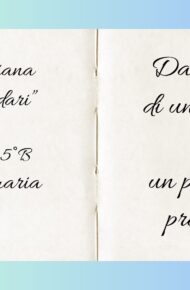 iana
dari”
5°B
aria
Da
di un
un p
pr